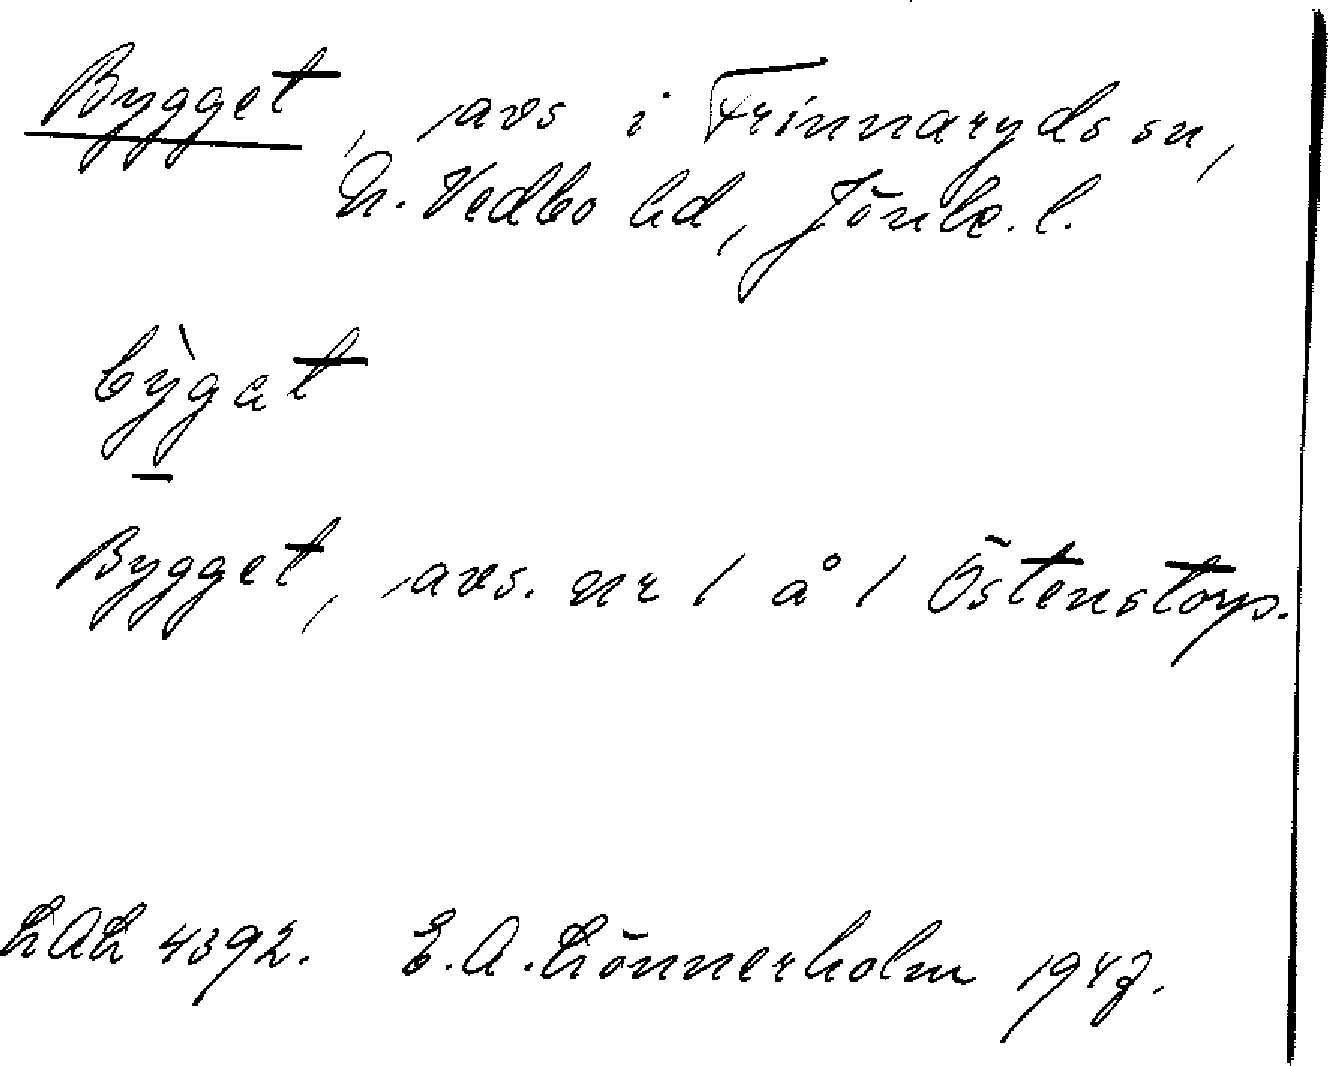 Bygget, avs i Frinnaryds sn,
N. Vedbo hd, Jönk. l.
bỳgat
Bygget, avs. nr 1 å 1 Östenstorp.
LAL 4392. E.A. Lönnerholm 1947.